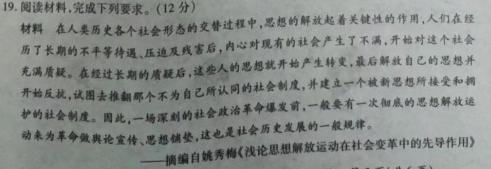 19. 阅读材料,完成下列要求。(12 分)
材料 在人类历史各个社会形态的交替过程中,思想的解放起着关键性的作用,人们在经
历了长期的不平等待遇、压迫及残害后,内心对现有的社会产生了不满,开始对这个社会
充满质疑。在经过长期的质疑后,这些人的思想就开始产生转变,最后解放自己的思想并
开始反抗,试图去推翻那个不为自己所认同的社会制度,并建立一个被新思想所接受和拥
护的社会制度。因此,一场深刻的社会政治革命爆发前,一般要有一次彻底的思想解放运
动来为革命做舆论宣传、思想铺垫,这也是社会历史发展的一般规律。
——摘编自姚秀梅《浅论思想解放运动在社会变革中的先导作用》